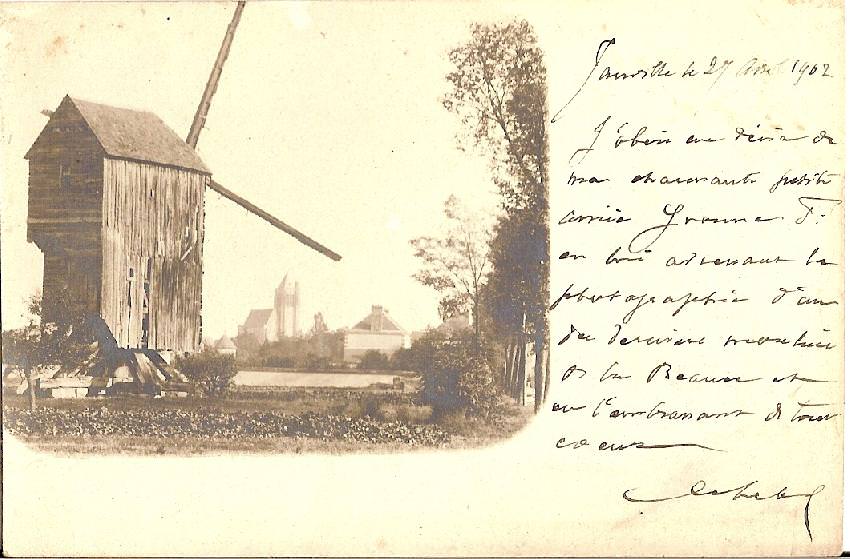 Janville le 27 Avril 1902
J'obéis au désir de
ma charmante petite
amie Yvonne F.
en lui adressant la
photographie d'un
des derniers moulins
de la Beauce et
en l'embrassant de tout
coeur